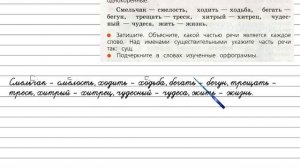 однокоренные.
Смельчак — смелость, ходить — ходьба, бегать —
бегун, трещать — треск, хитрый — хитрец, чудес-
ный — чудеса, жить — жизнь.
Запишите. Объясните, какой частью речи является каждое
слово. Над именами существительными укажите части речи
так: сущ.
Подчеркните в словах изученные орфограммы.
Смельчак – смелость, ходить – ходьба, бегать – бегун, трещать –
треск, хитрый – хитрец, чудесный – чудеса, жить – жизнь.